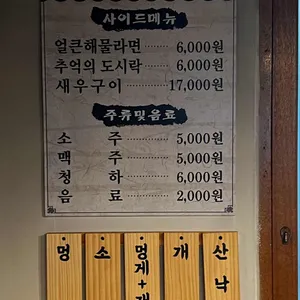 사이드메뉴
얼큰해물라면 ········ 6,000원
추억의 도시락 ········ 6,000원
새우구이 ············ 17,000원
주류및음료
소 주 ············ 5,000원
맥 주 ············ 5,000원
청 하 ············ 6,000원
음 료 ············ 2,000원
멍
소
멍게+
개
산낙